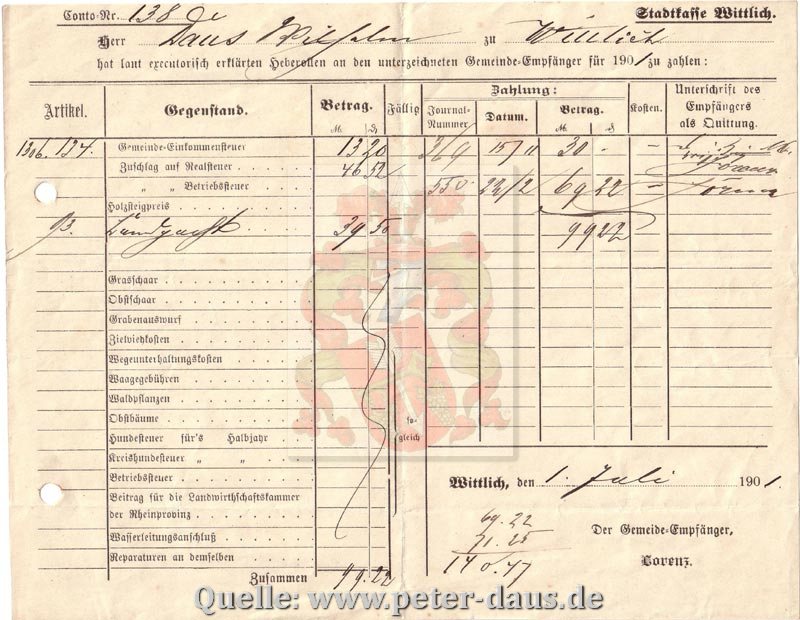 Conto-Nr. 138 Stadtkasse Wittlich.
Herr Daus Wilhelm zu Wittlich
hat laut executorisch erklärten Heberollen an den unterzeichneten Gemeinde-Empfänger für 1901 zu zahlen:
Artikel. Gegenstand. Betrag. Fällig Zahlung: Kosten. Unterschrift des Empfängers als Quittung.
Journal-Nummer. Datum. Betrag.
M. ₰ M. ₰
1306. 134. Gemeinde-Einkommensteuer 13 20 269 15/11 30 -
Zuschlag auf Realsteuer 46 52
„ „ Betriebsteuer 550 22/2 69 22 -
Holzsteigpreis
93. Landpacht 39 50 99 22
Grasschaar
Obstschaar
Grabenauswurf
Zielviehkosten
Wegeunterhaltungskosten
Waagegebühren
Waldpflanzen
Obstbäume so-
Hundesteuer für's Halbjahr gleich
Kreishundesteuer „ „
Betriebsteuer
Beitrag für die Landwirthschaftskammer
der Rheinprovinz
Wasserleitungsanschluß
Reparaturen an demselben
Zusammen 99.22
Wittlich, den 1. Juli 1901.
69.22
71.25
140.47
Der Gemeide-Empfänger,
Lorenz.
Quelle: www.peter-daus.de